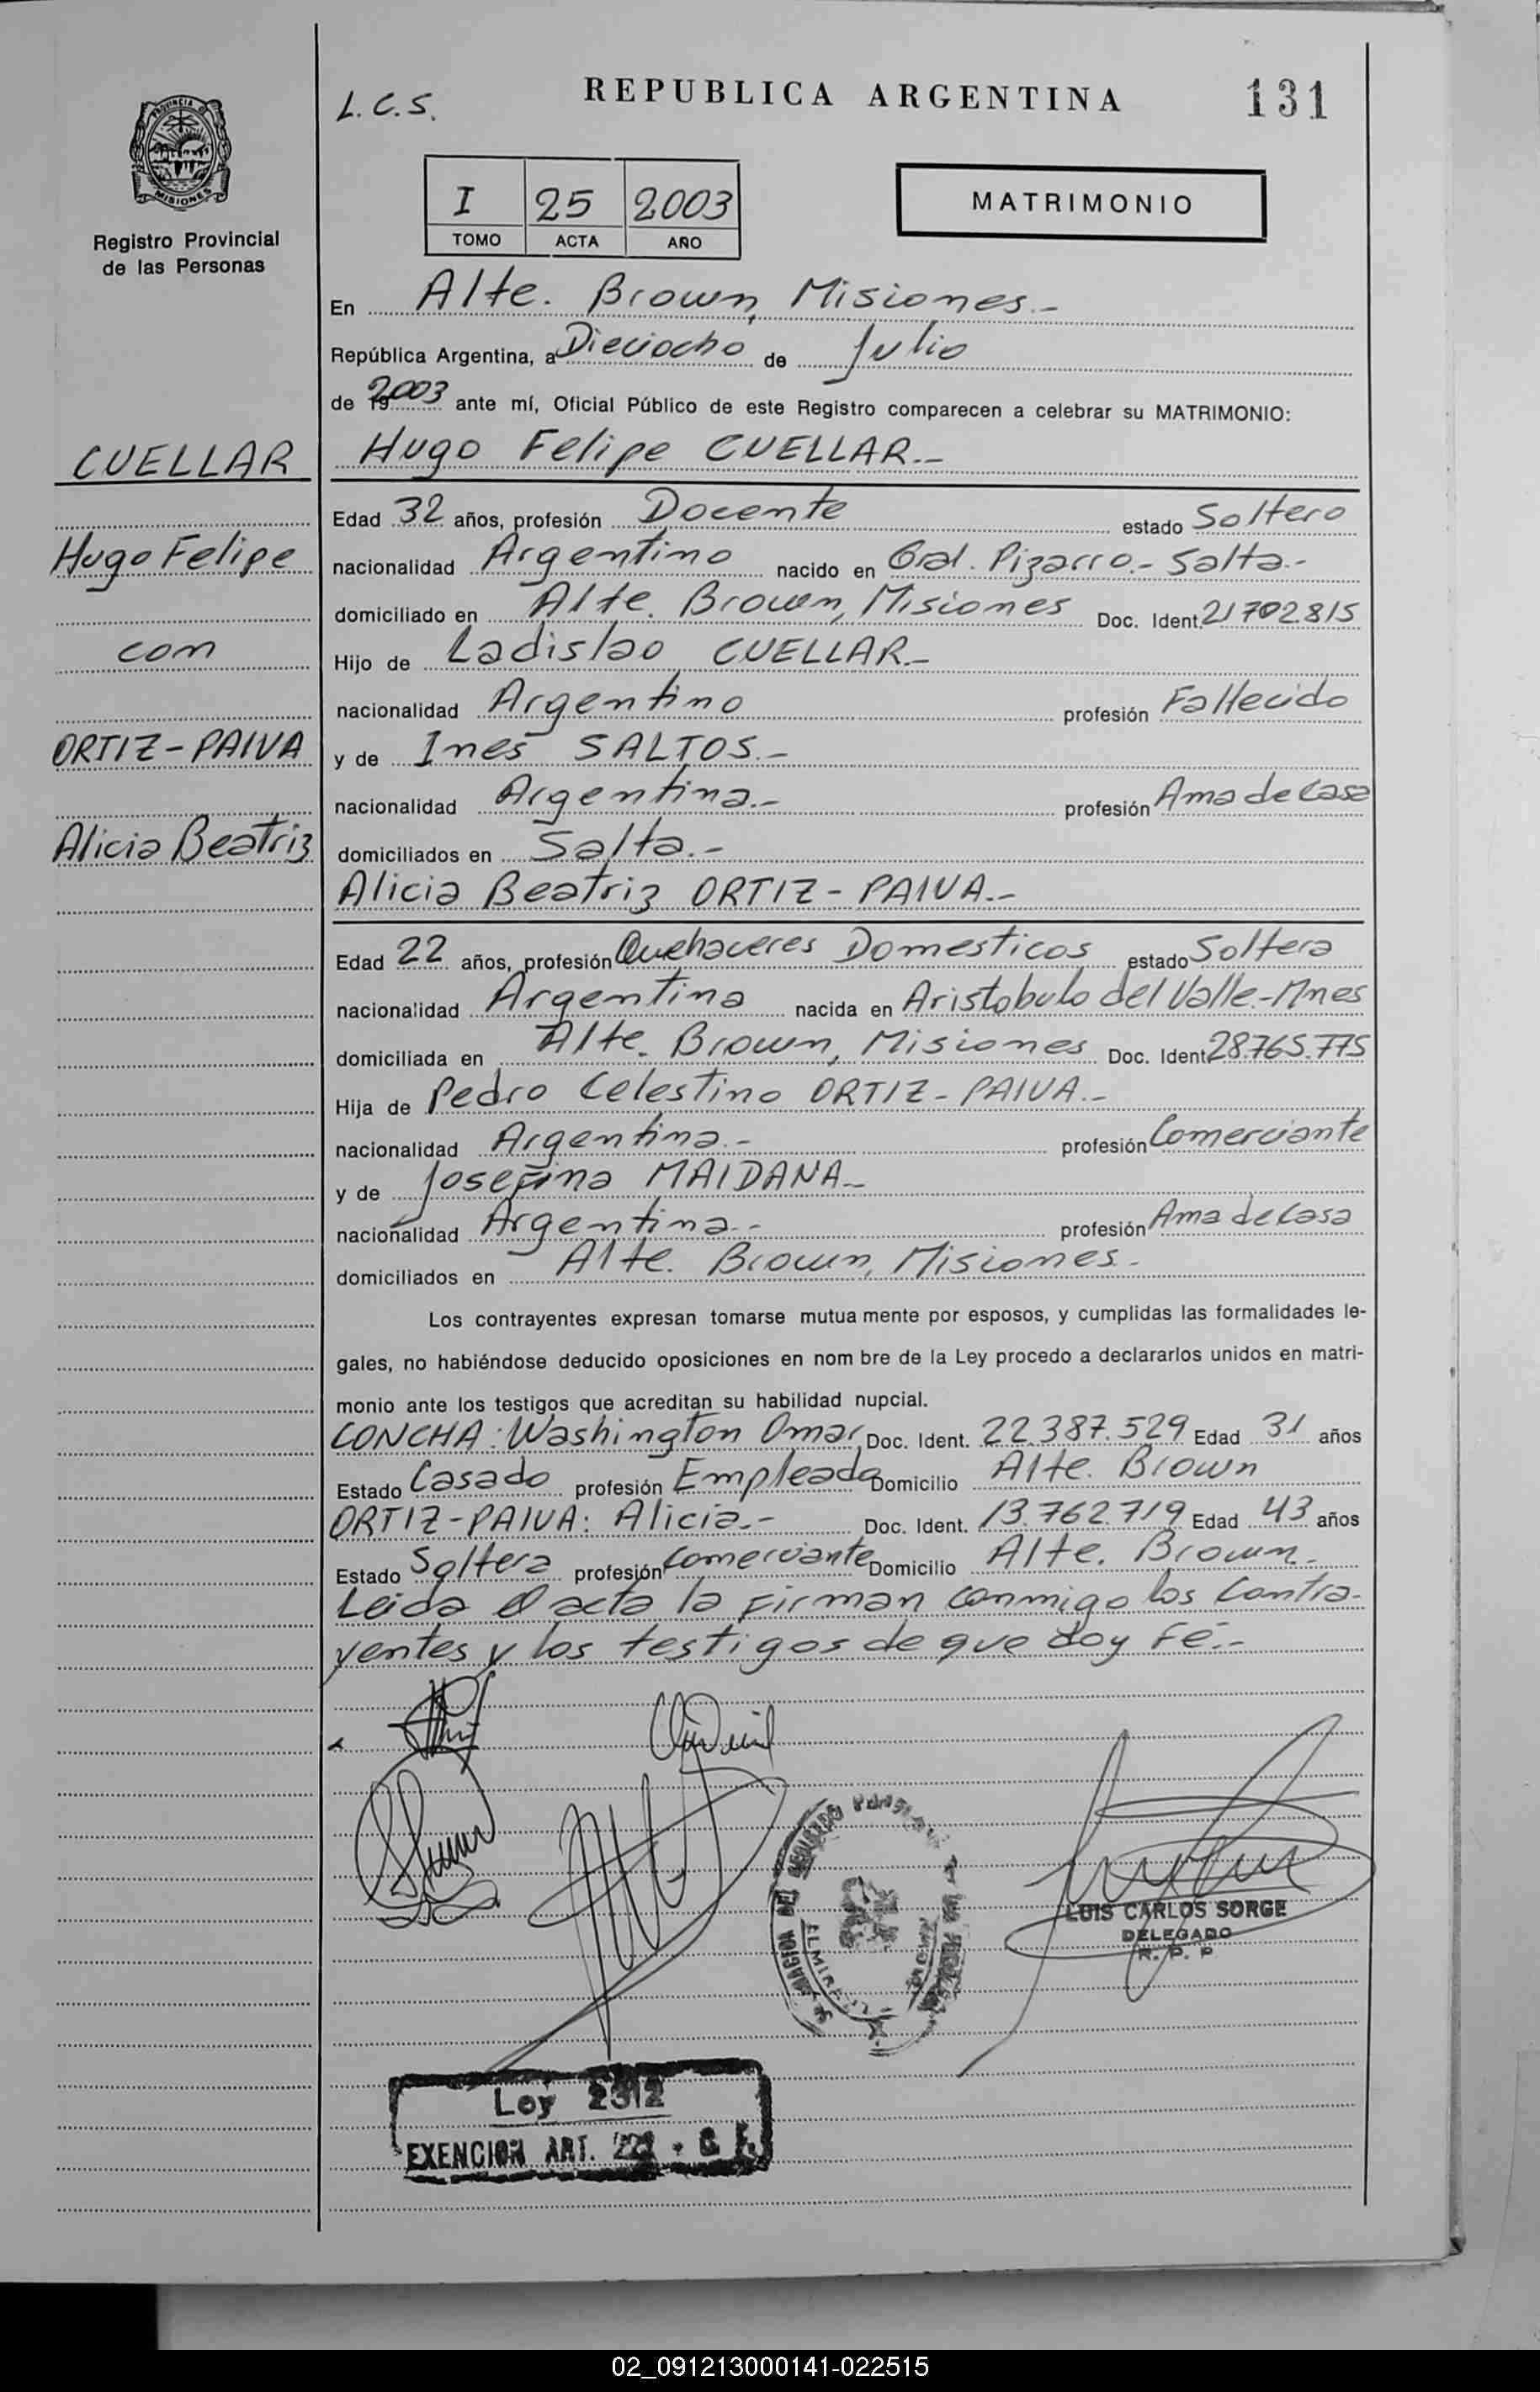 L.C.S.
REPUBLICA ARGENTINA
131
PROVINCIA D
MISIONES
Registro Provincial
de las Personas
I 25 2003
TOMO ACTA AÑO
MATRIMONIO
En Alte. Brown, Misiones.-
República Argentina, a Dieciocho de Julio
de 19 2003 ante mí, Oficial Público de este Registro comparecen a celebrar su MATRIMONIO:
CUELLAR
Hugo Felipe
con
ORTIZ-PAIVA
Alicia Beatriz
Hugo Felipe CUELLAR.-
Edad 32 años, profesión Docente estado Soltero
nacionalidad Argentino nacido en Gral. Pizarro.- Salta.-
domiciliado en Alte. Brown, Misiones Doc. Ident. 21702815
Hijo de Ladislao CUELLAR.-
nacionalidad Argentino profesión Fallecido
y de Ines SALTOS.-
nacionalidad Argentina.- profesión Ama de Casa
domiciliados en Salta.-
Alicia Beatriz ORTIZ-PAIVA.-
Edad 22 años, profesión Quehaceres Domesticos estado Soltera
nacionalidad Argentina nacida en Aristobulo del Valle.-Mnes
domiciliada en Alte. Brown, Misiones Doc. Ident. 28.765.775
Hija de Pedro Celestino ORTIZ-PAIVA.-
nacionalidad Argentina.- profesión Comerciante
y de Josefina MAIDANA.-
nacionalidad Argentina.- profesión Ama de Casa
domiciliados en Alte. Brown, Misiones.-
Los contrayentes expresan tomarse mutua mente por esposos, y cumplidas las formalidades le-
gales, no habiéndose deducido oposiciones en nom bre de la Ley procedo a declararlos unidos en matri-
monio ante los testigos que acreditan su habilidad nupcial.
CONCHA: Washington Omar Doc. Ident. 22.387.529 Edad 31 años
Estado Casado profesión Empleado Domicilio Alte. Brown
ORTIZ-PAIVA: Alicia.- Doc. Ident. 13.762.719 Edad 43 años
Estado Soltera profesión Comerciante Domicilio Alte. Brown.-
Leida el acta la firman conmigo los Contra-
yentes y los testigos de que doy Fé.-
LUIS CARLOS SORGE
DELEGADO
R. P. P
Ley 2312
EXENCION ART.
02_091213000141-022515